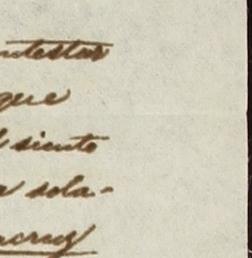 ntestar
que
l siento
a sola-
acruz